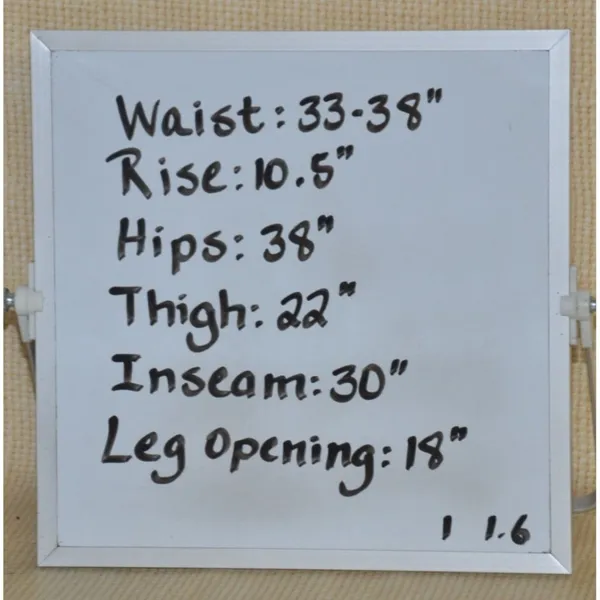 Waist: 33-38"
Rise: 10.5"
Hips: 38"
Thigh: 22"
Inseam: 30"
Leg Opening: 18"
1 1.6